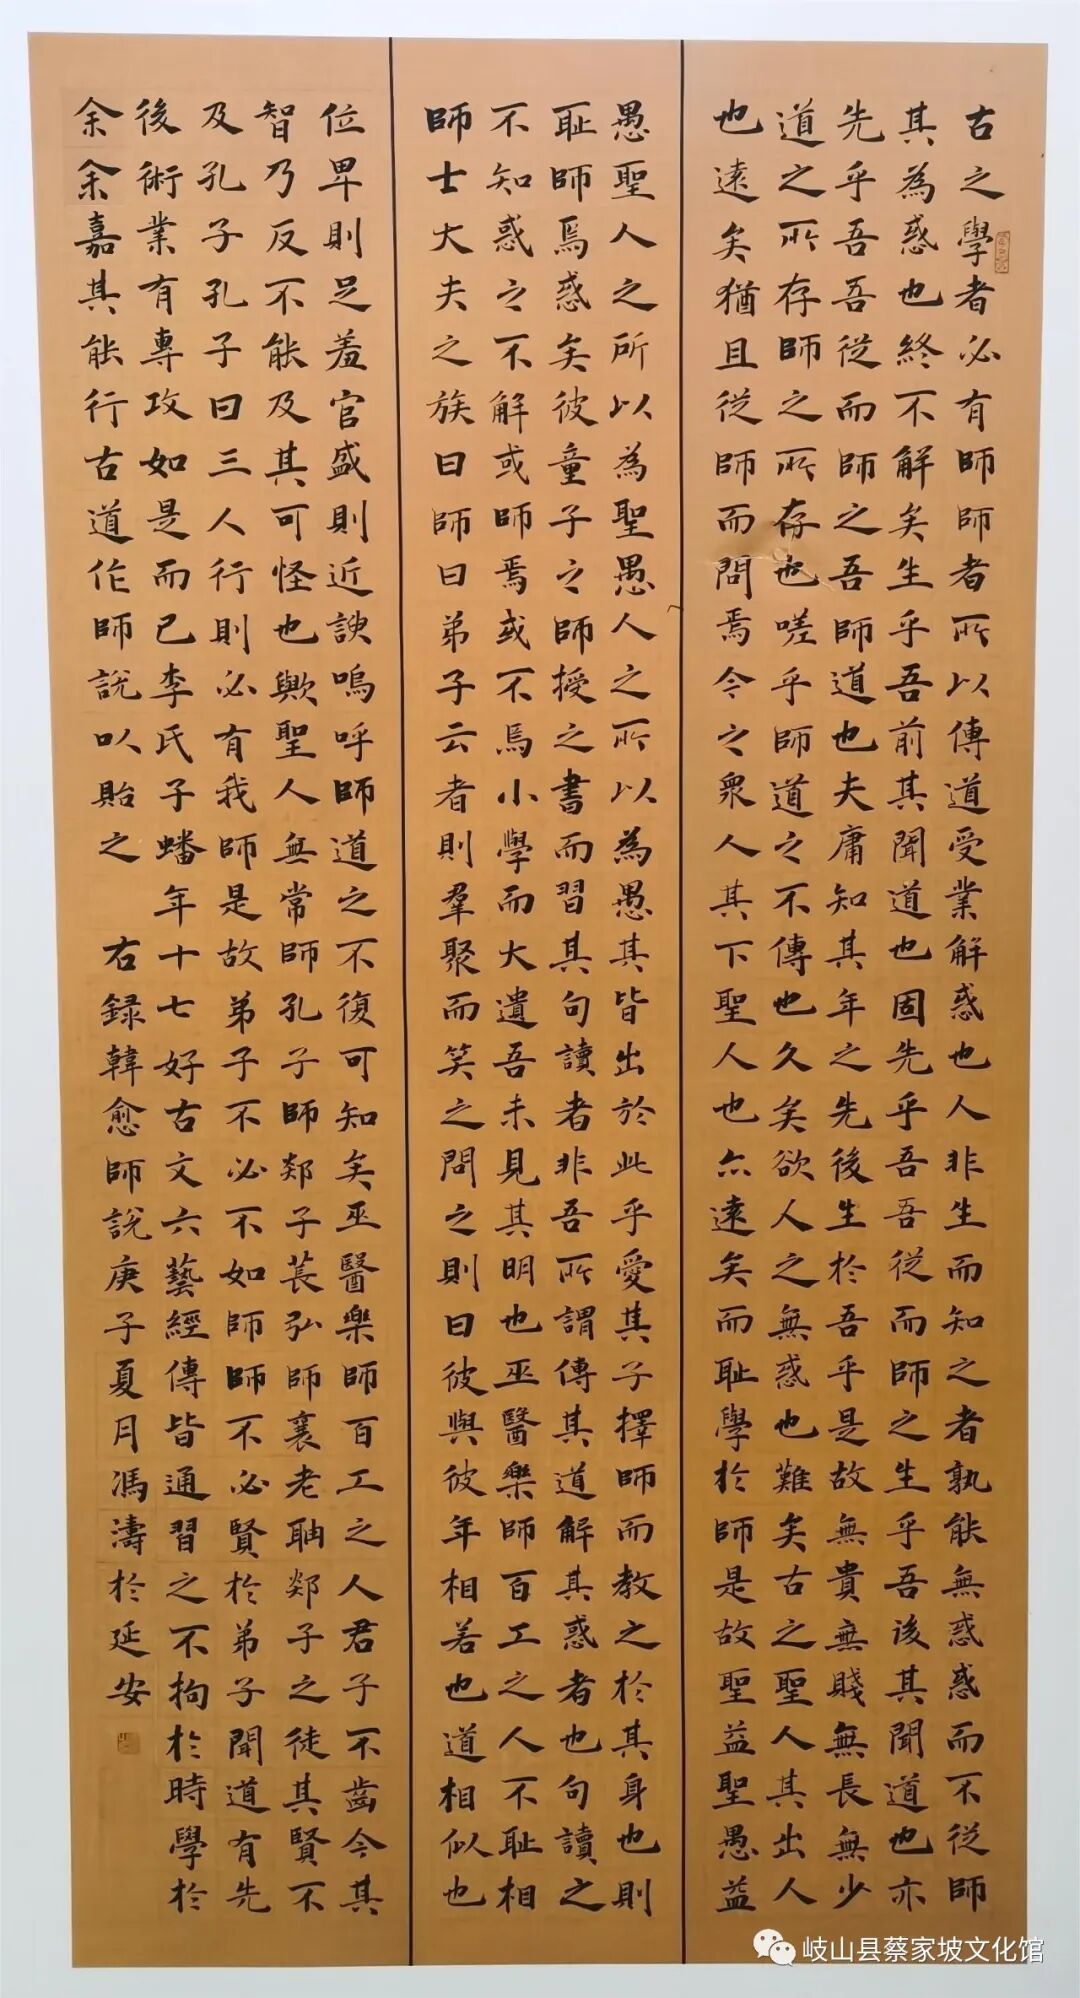 古之學者必有師師者所以傳道受業解惑也人非生而知之者孰能無惑惑而不從師
其為惑也終不解矣生乎吾前其聞道也固先乎吾吾從而師之生乎吾後其聞道也亦
先乎吾吾從而師之吾師道也夫庸知其年之先後生於吾乎是故無貴無賤無長無少
道之所存師之所存也嗟乎師道之不傳也久矣欲人之無惑也難矣古之聖人其出人
也遠矣猶且從師而問焉今之衆人其下聖人也亦遠矣而耻學於師是故聖益聖愚益
愚聖人之所以為聖愚人之所以為愚其皆出於此乎愛其子擇師而教之於其身也則
耻師焉惑矣彼童子之師授之書而習其句讀者非吾所謂傳其道解其惑者也句讀之
不知惑之不解或師焉或不焉小學而大遺吾未見其明也巫醫樂師百工之人不耻相
師士大夫之族曰師曰弟子云者則羣聚而笑之問之則曰彼與彼年相若也道相似也
位卑則足羞官盛則近諛嗚呼師道之不復可知矣巫醫樂師百工之人君子不齒今其
智乃反不能及其可怪也歟聖人無常師孔子師郯子萇弘師襄老聃郯子之徒其賢不
及孔子孔子曰三人行則必有我師是故弟子不必不如師師不必賢於弟子聞道有先
後術業有專攻如是而已李氏子蟠年十七好古文六藝經傳皆通習之不拘於時學於
余余嘉其能行古道作師說以貽之 右録韓愈師說庚子夏月馮濤於延安
岐山县蔡家坡文化馆